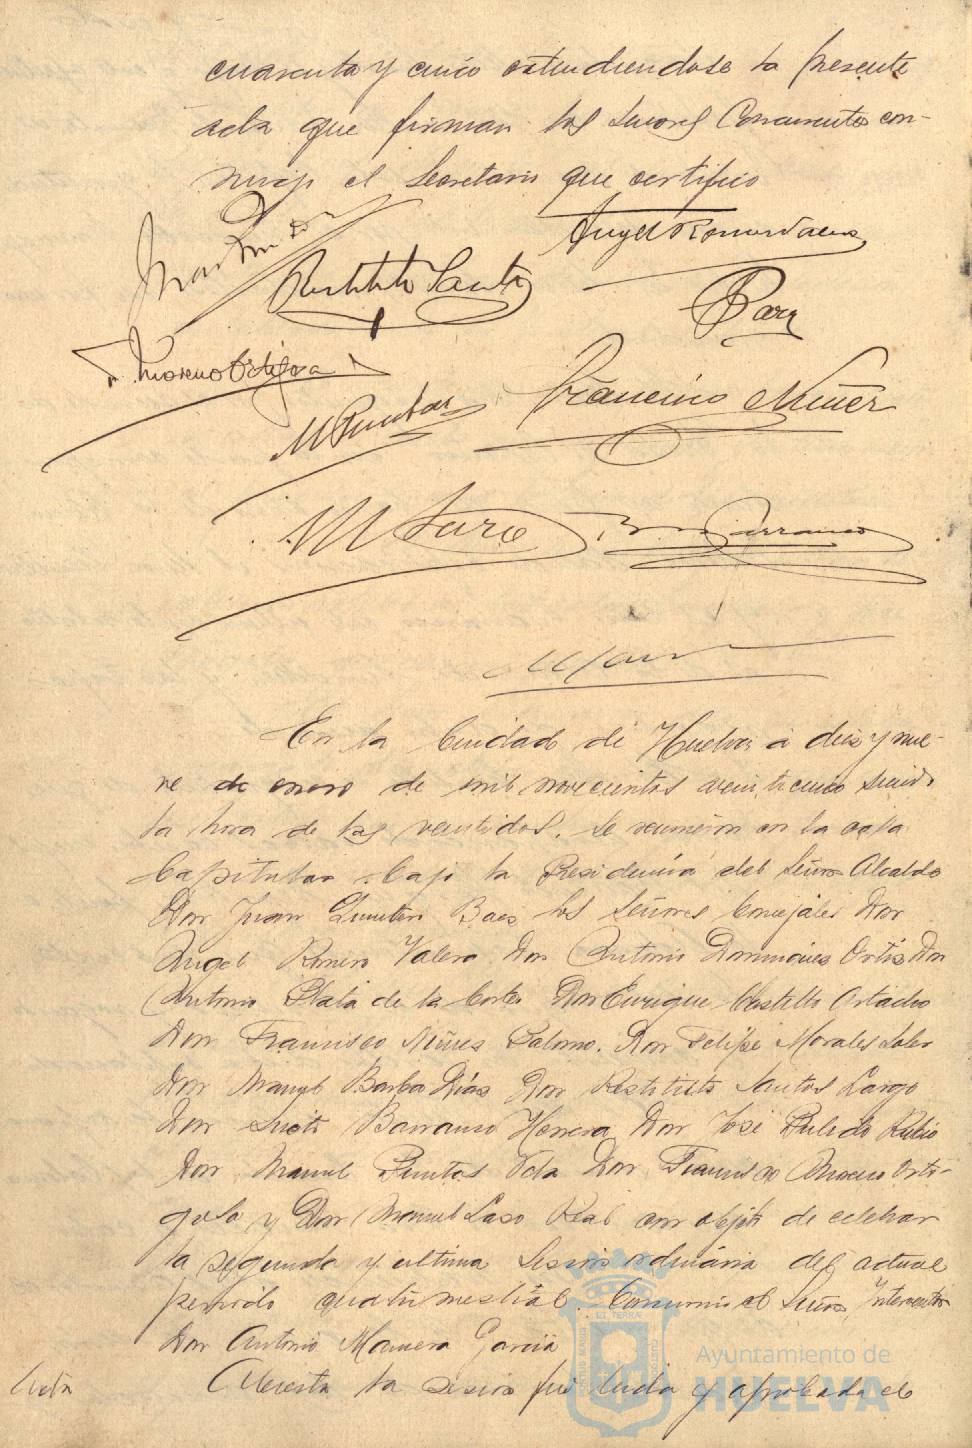 cuarenta y cinco extendiendose la presente
acta que firman los Señores Concurrentes con-
migo el Secretario que certifico
Angel Romero Valera
Restituto Santos
Moreno Ortigosa
Francisco Núñez
M Puntas
M Laso
Barranco
En la Ciudad de Huelva á diez y nue-
ve de enero de mil novecientos veinticinco siendo
la hora de las veintidos, se reunieron en la casa
Capitular bajo la Presidencia del Señor Alcalde
Don Juan Quintero Baez los Señores Concejales Don
Angel Romero Valera Don Antonio Domínguez Ortiz Don
Antonio Plata de la Corte Don Enrique Castillo Ortacho
Don Francisco Núñez Palomo. Don Felipe Morales Soler
Don Manuel Barba Diás Don Restituto Santos Largo
Don Barranco Herrera Don José Pulido Rubio
Don Manuel Puntas Vela Don Francisco Moreno Orti-
gosa y Don Manuel Laso Real con objeto de celebrar
la segunda y ultima Sesion ordinaria del actual
periodo cuatrimestral. Concurrió el Señor Interventor
Don Antonio García
Acta Abierta la sesion fué leida y aprobada el
Ayuntamiento de
HUELVA